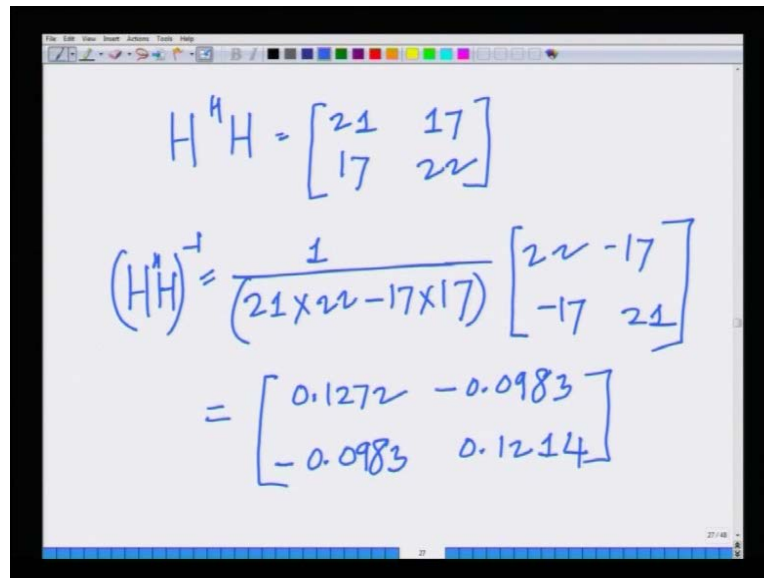 File Edit View Insert Actions Tools Help
B I
H^H H = [21 17
17 22]
(H^H H)^-1 = 1/(21×22-17×17) [22 -17
-17 21]
= [0.1272 -0.0983
-0.0983 0.1214]
27/48
27